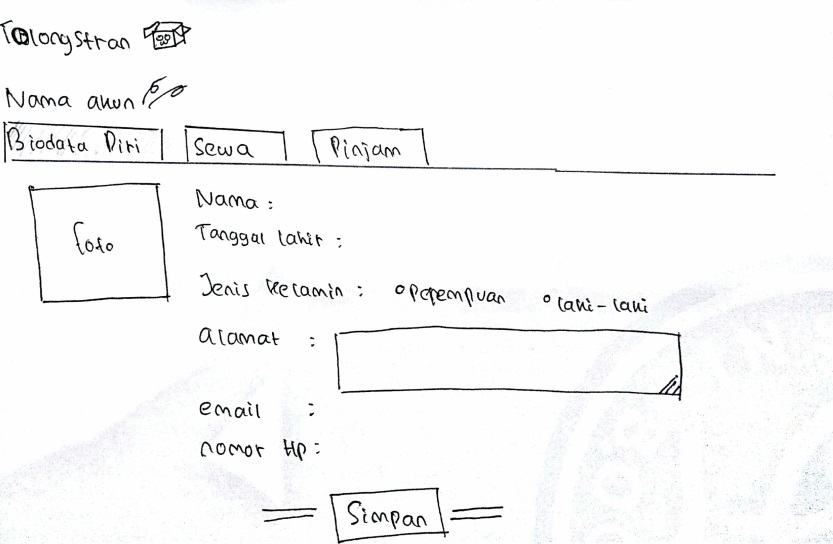 Tolongstran
Nama akun
Biodata Diri Sewa Pinjam
foto
Nama :
Tanggal lahir :
Jenis kelamin : perempuan laki-laki
alamat :
email :
nomor Hp :
Simpan